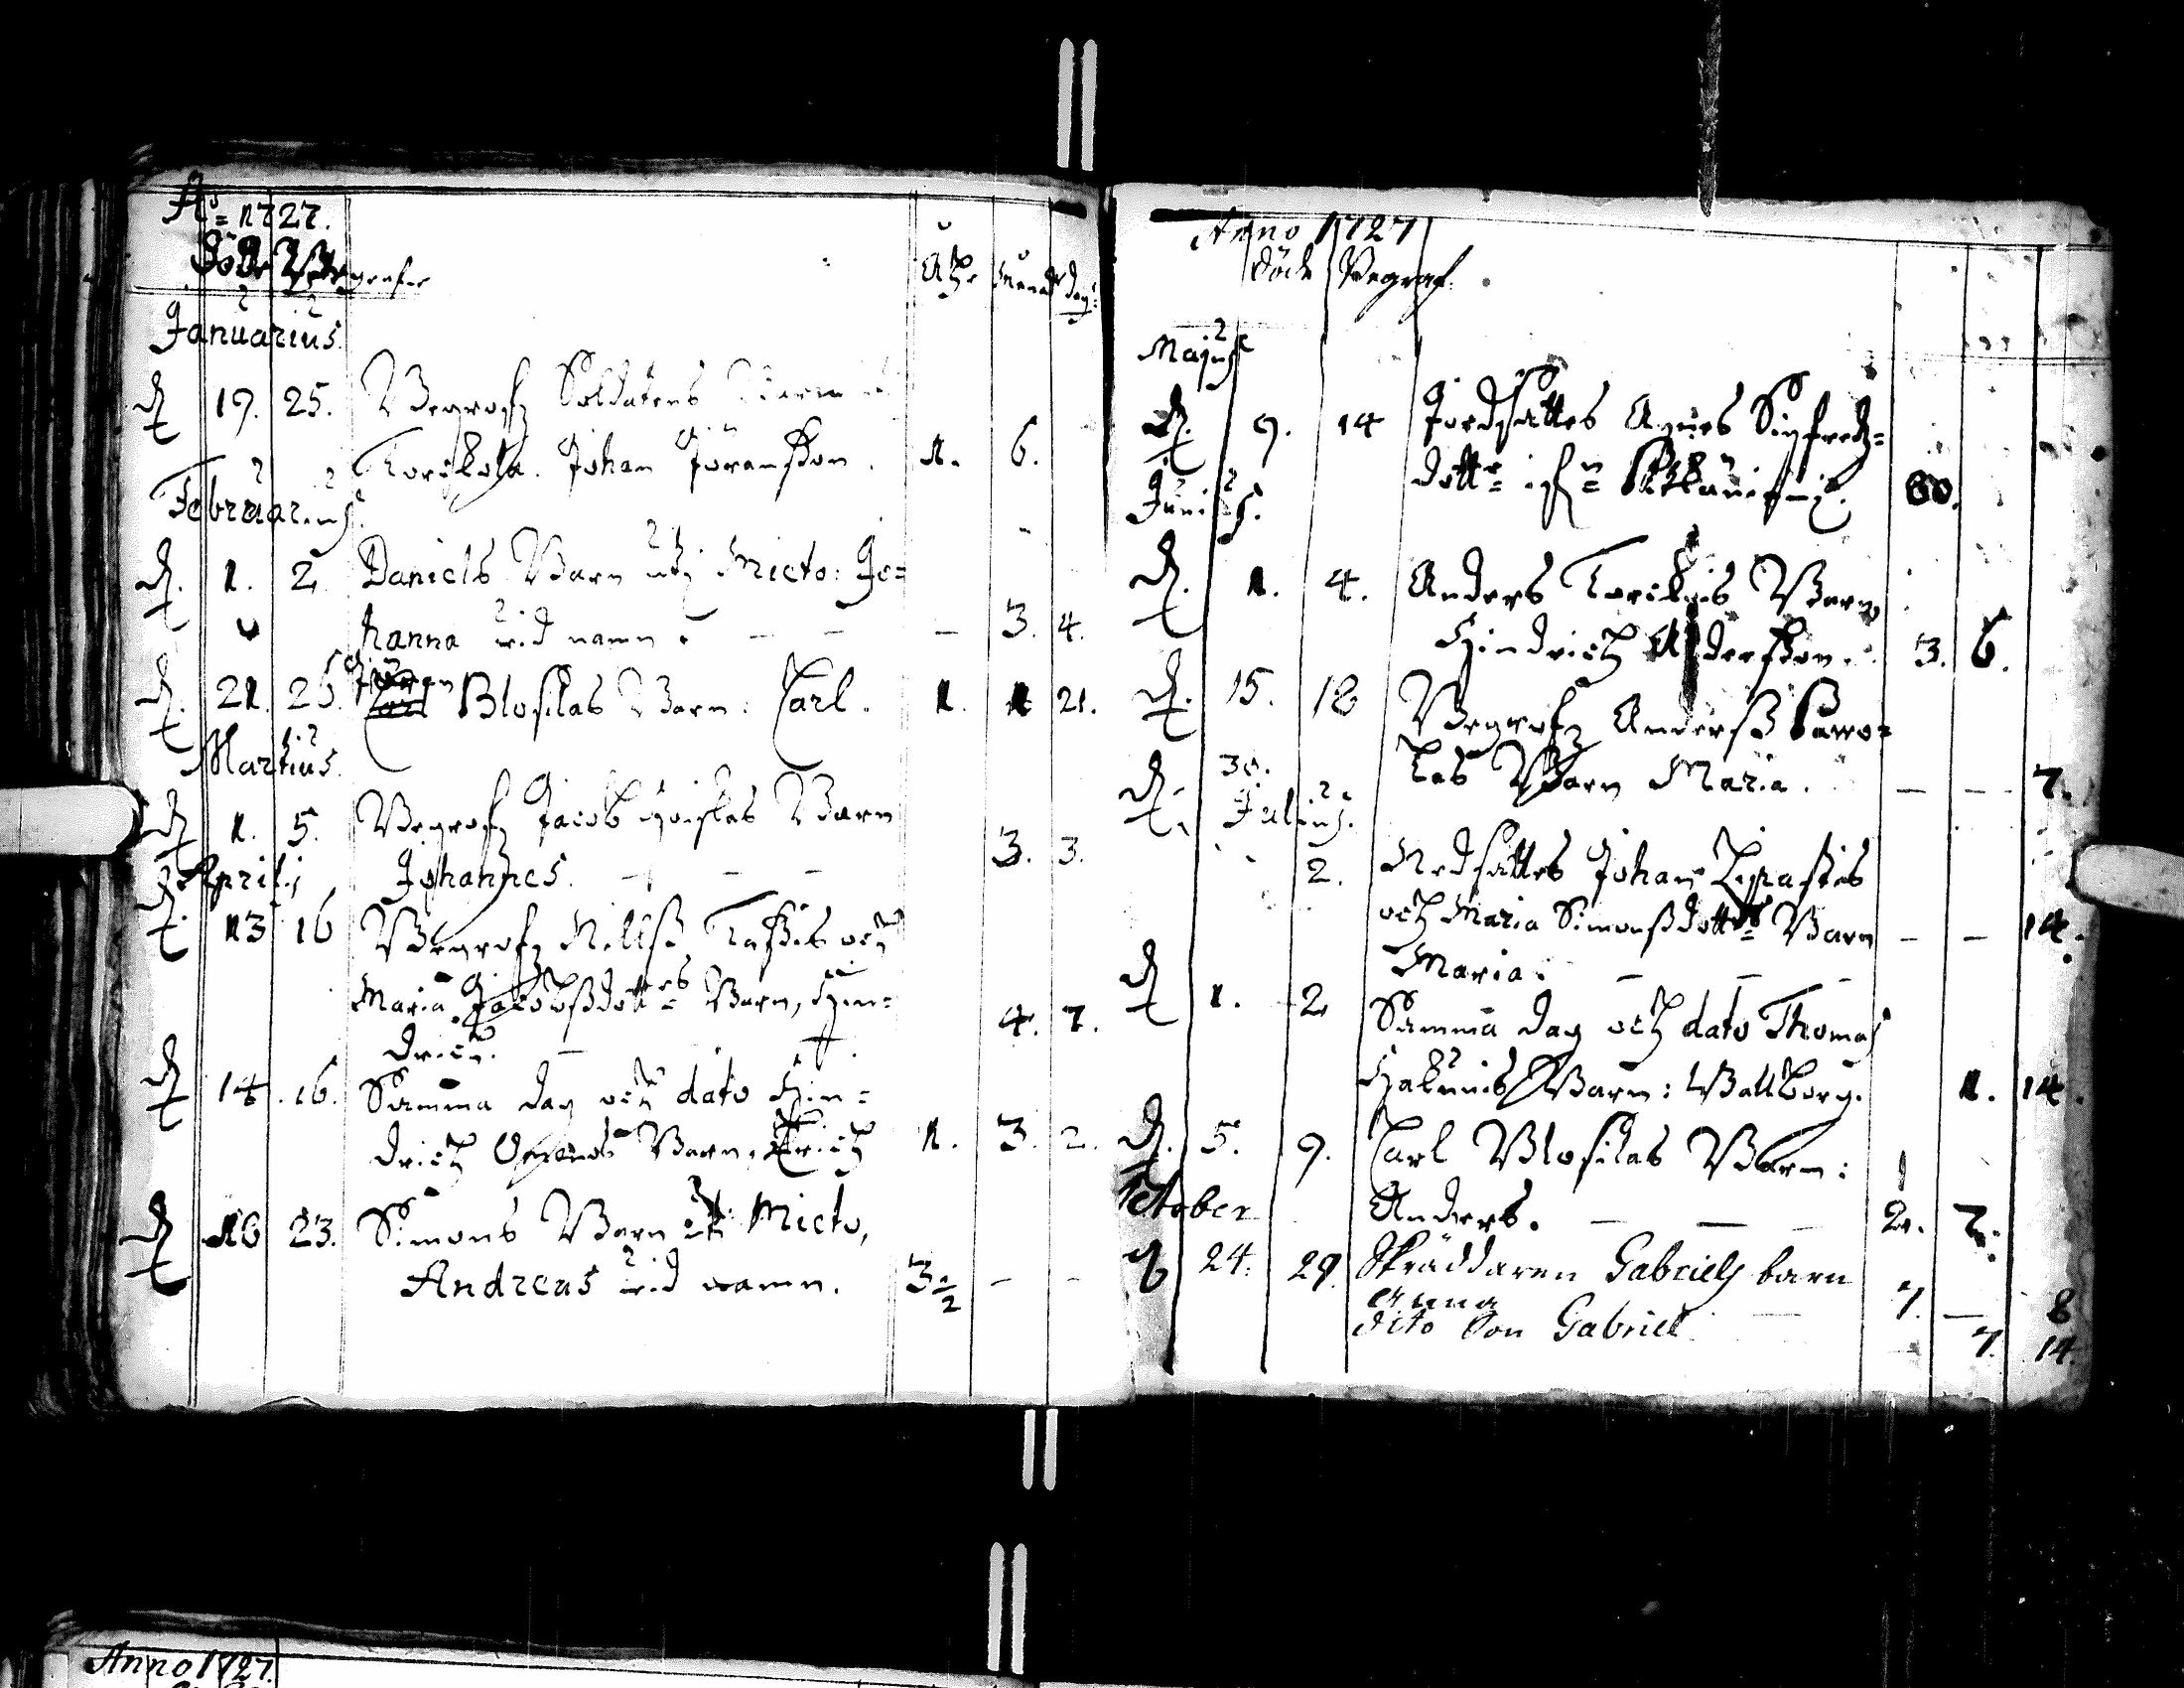 Ao = 1727.
Döde Begrafne
Åhr Månad dag
Januarius.
D 19. 25. Begrofz Soldatens Barn
Johan Jöransson. 1. 6.
Februarius.
D. 1. 2. Daniels Barn utj Mieto: Jo=
hanna vid namn. — — — 3. 4.
D. 21. 26. Jöran
Carl Blosilas Barn: Carl. 1. 1 21.
Martius.
D 1. 5. Begrofz Jacob Barn
Johannes. — — — 3. 3.
Aprilis
D. 13 16 Begrofz Nillss och
Maria Jacobssdotters Barn, Hin=
drich. — 4. 7.
D 14. 16. Samma dag och dato Hin=
drich Barn, Erich 1. 3. 2.
D 18 23. Simons Barn utj Mieto,
Andreas vid namn. 3 1/2 — —
Anno 1727
döde Begraf.
Majus
D. 9. 14 Jordsattes Agnes Sigfredz=
dotter 80.
Junius.
D. 1. 4. Anders Barn
Hindrich Andersson. 3. 6.
D. 15. 18 Begrofz Anderss Sawo=
las Barn Maria. — — 7.
D. 30.
Julius.
2. Nedsattes Johan
och Maria Simonssdotters Barn — — 14.
Maria. — — —
D 1. 2 Samma dag och dato Thomas
Barn: Wallborg. 1. 14.
D. 5. 9. Carl Blosilas Barn:
Anders. — — — 2. 7.
October
24. 29. Skräddaren Gabriels barn
Anna 7. — 8
dito Son Gabriel — 7 14.
Anno 1727